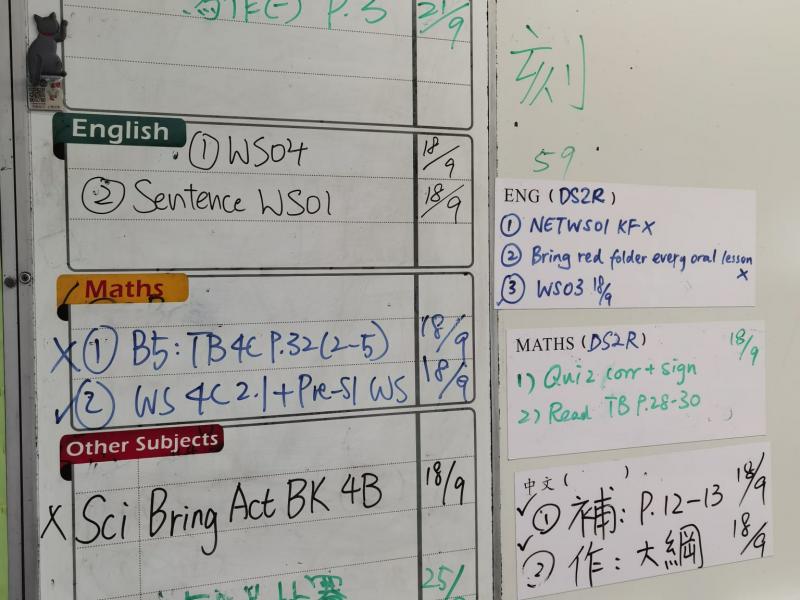 P.3 21/9
English
① WS04 18/9
② Sentence WS01 18/9
Maths
X ① B5: TB 4C P.32 (2-5) 18/9
✓ ② WS 4C 2.1 + Pre-S1 WS 18/9
Other Subjects
X Sci Bring Act BK 4B 18/9
25/
刻
59
ENG (DS2R)
① NETWS01 KF-X
② Bring red folder every oral lesson X
✓ ③ WS03 18/9
MATHS (DS2R) 18/9
1) Quiz corr + sign
2) Read TB P.28-30
中文 ( ).
✓ ① 補: P.12-13 18/9
✓ ② 作: 大綱 18/9